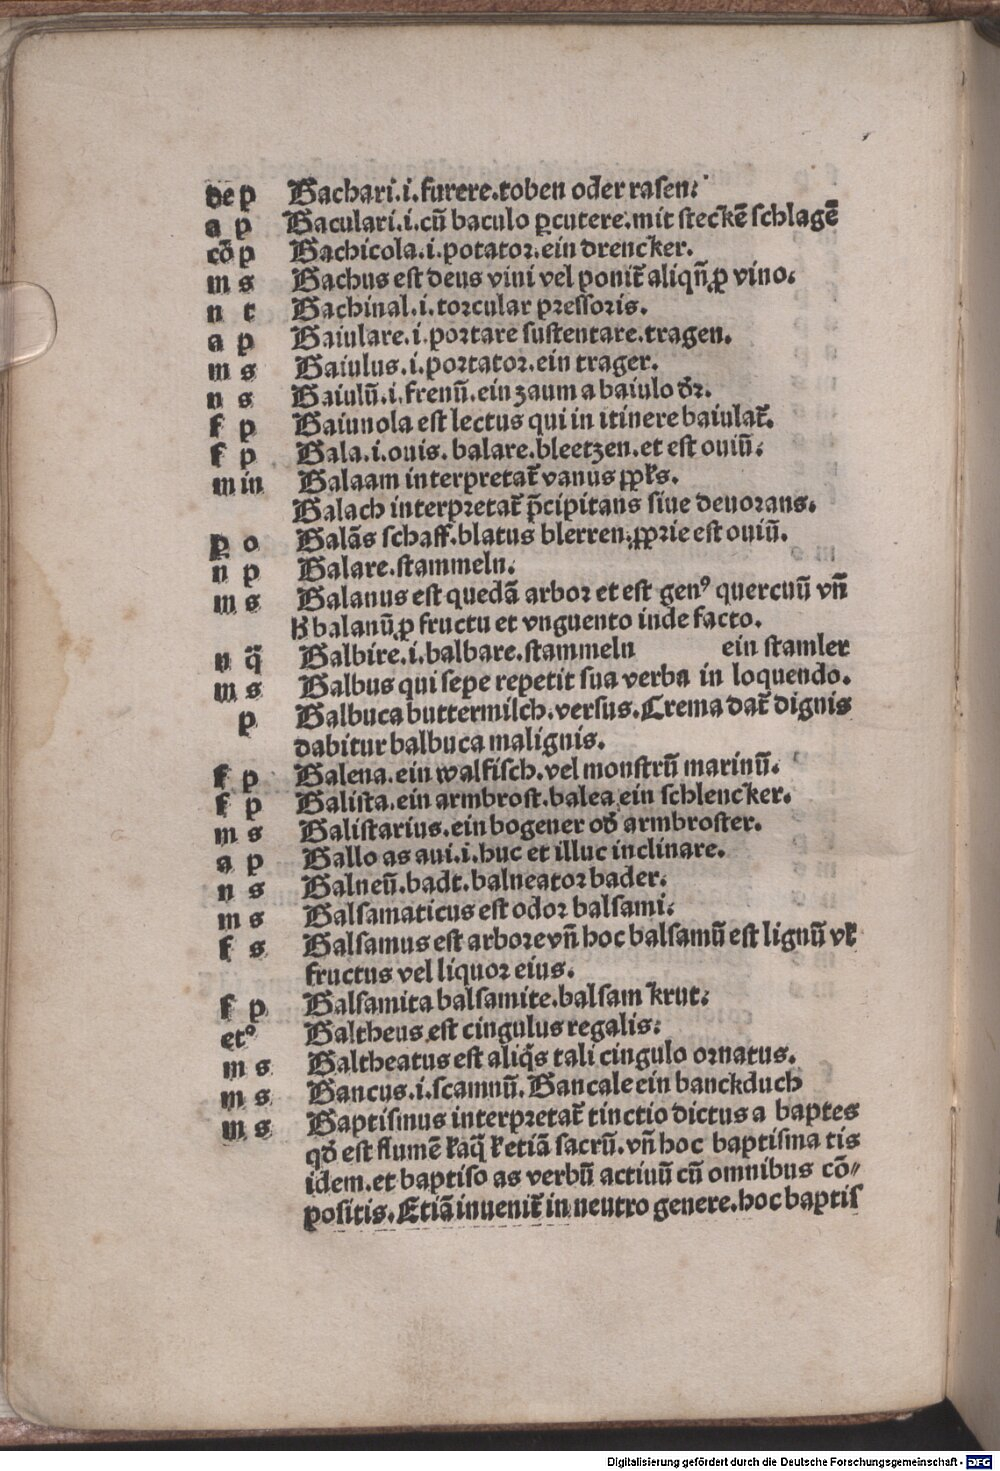 de p Bachari.i.furere.toben oder rasen.
a p Baculari.i.cū baculo ꝑcutere.mit steckē schlagē
cō p Bachicola.i.potator.ein drencker.
m s Bachus est deus vini vel ponit᷑ aliqn̄ ꝓ vino.
n t Bachinal.i.torcular pressoris.
a p Baiulare.i.portare sustentare.tragen.
m s Baiulus.i.portator.ein trager.
n s Baiulū.i.frenū.ein zaum a baiulo dr̄.
f p Baiunola est lectus qui in itinere baiulat᷑.
f p Bala.i.ouis.balare.bleetzen.et est ouiū.
m in Balaam interpretat᷑ vanus ppl̓s.
Balach interpretat᷑ p̄cipitans siue deuorans.
p o Balās schaff.blatus blerren.ꝓprie est ouiū.
n p Balare.stammeln.
m s Balanus est quedā arbor et est genꝰ quercuū vn̄
h̓ balanū ꝓ fructu et vnguento inde facto.
n q̄ Balbire.i.balbare.stammeln ein stamler
m s Balbus qui sepe repetit sua verba in loquendo.
p Balbuca buttermilch.versus.Crema dat᷑ dignis
dabitur balbuca malignis.
f p Balena.ein walfisch.vel monstrū marinū.
f p Balista.ein armbrost.balea ein schlencker.
m s Balistarius.ein bogener od̓ armbroster.
a p Ballo as aui.i.huc et illuc inclinare.
n s Balneū.badt.balneator bader.
m s Balsamaticus est odor balsami.
f s Balsamus est arbor evn̄ hoc balsamū est lignū vl̓
fructus vel liquor eius.
f p Balsamita balsamite.balsam krut.
etꝰ Baltheus est cingulus regalis.
m s Baltheatus est aliq̄s tali cingulo ornatus.
m s Bancus.i.scamnū.Bancale ein banckduch
m s Baptismus interpretat᷑ tinctio dictus a baptes
qd̓ est flumē ⁊ aq̄ ⁊ etiā sacrū.vn̄ hoc baptisma tis
idem.et baptiso as verbū actiuū cū omnibus cō⸗
positis.Etiā inuenit᷑ in neutro genere.hoc baptis
Digitalisierung gefördert durch die Deutsche Forschungsgemeinschaft - DFG